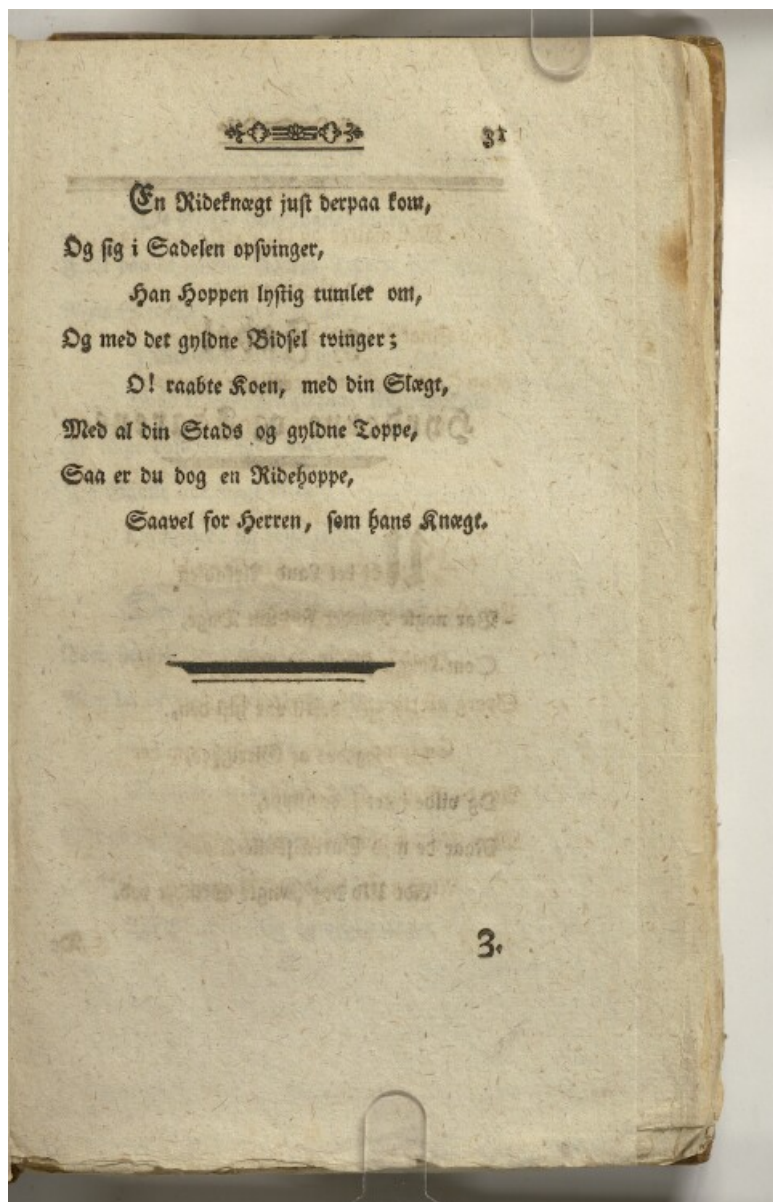 31
En Rideknægt just derpaa kom,
Og sig i Sadelen opsvinger,
Han Hoppen lystig tumler om,
Og med det gyldne Bidsel tvinger;
O! raabte Koen, med din Slægt,
Med al din Stads og gyldne Toppe,
Saa er du dog en Ridehoppe,
Saavel for Herren, som hans Knægt.
3.